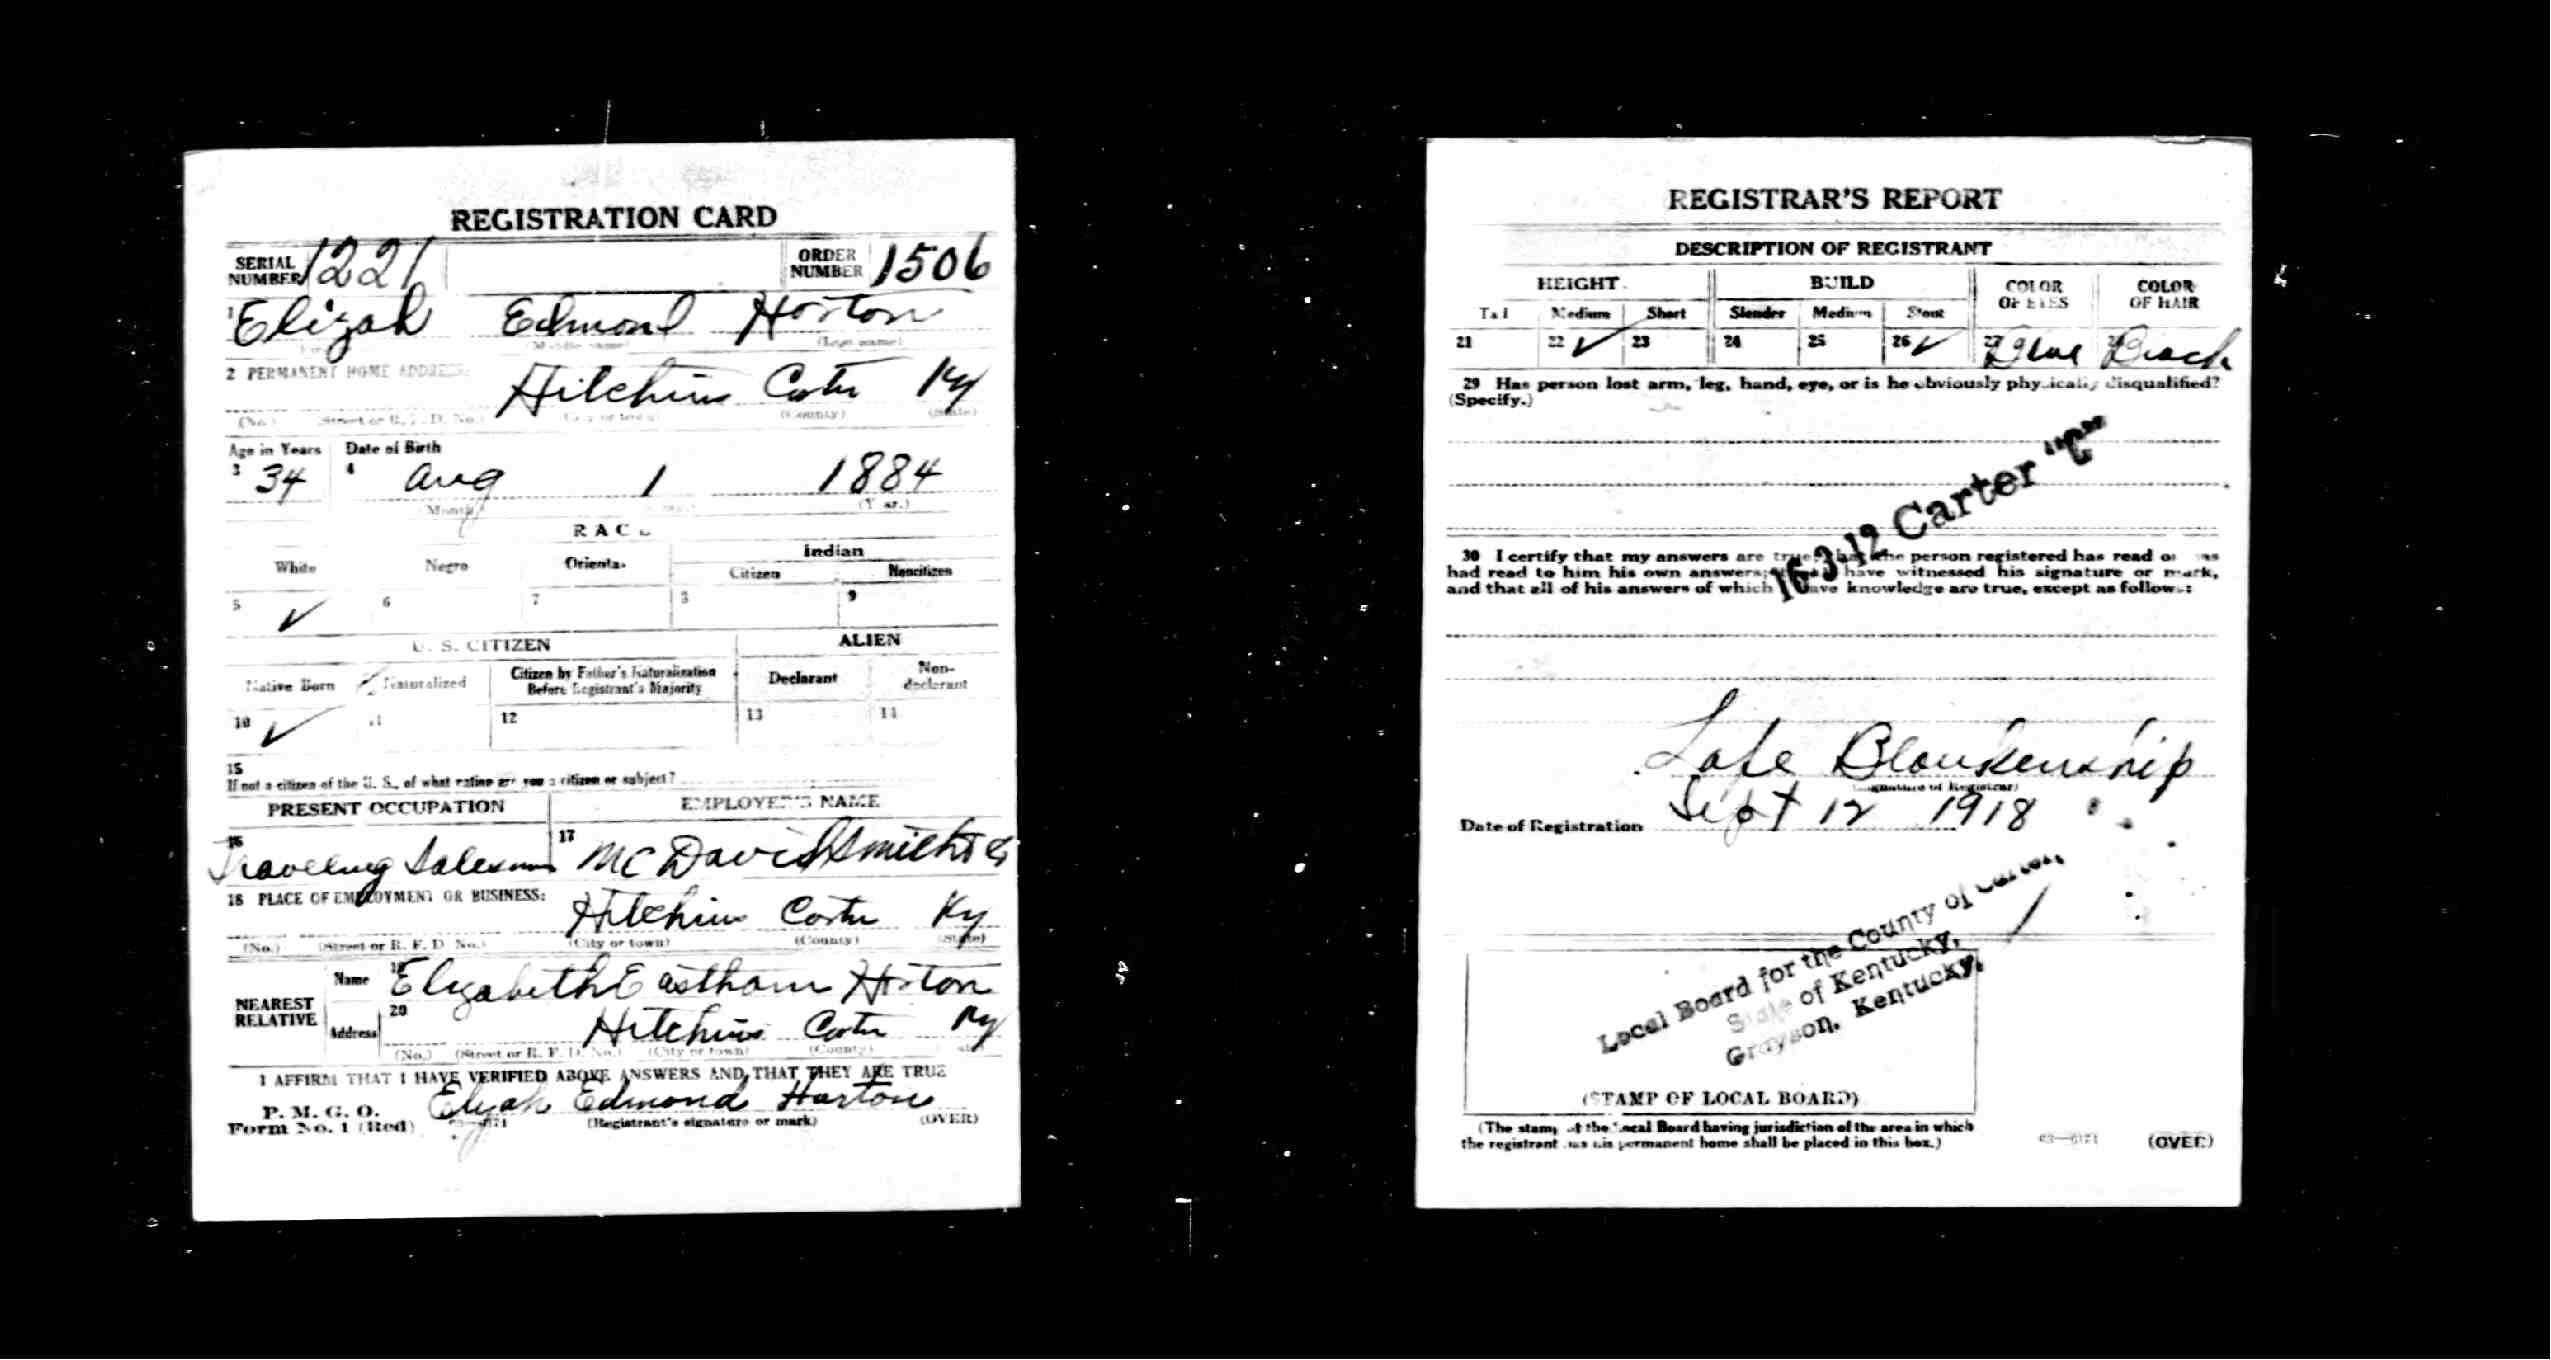 REGISTRATION CARD
SERIAL NUMBER 1221 ORDER NUMBER 1506
1 Elizah Edmond Horton
(Middle name) (Last name)
2 PERMANENT HOME ADDRESS:
Hitchins Carter Ky
(No.) (Street or R. F. D. No.) (City or town) (County) (State)
Age in Years Date of Birth
3 34 4 Aug 1 1884
(Month) (Year.)
RACE
White Negro Oriental Indian
Citizen Noncitizen
5 ✓ 6 7 8 9
U. S. CITIZEN ALIEN
Native Born Naturalized Citizen by Father's Naturalization Before Registrant's Majority Declarant Non-declarant
10 ✓ 11 12 13 14
15
If not a citizen of the U. S., of what nation are you a citizen or subject?
PRESENT OCCUPATION EMPLOYER'S NAME
16 Traveling Salesman 17 McDavid Smith
18 PLACE OF EMPLOYMENT OR BUSINESS:
Hitchins Carter Ky
(No.) (Street or R. F. D. No.) (City or town) (County) (State)
NEAREST RELATIVE
Name 19 Elizabeth Eastham Horton
Address 20 Hitchins Carter Ky
(No.) (Street or R. F. D. No.) (City or town) (County) (State)
I AFFIRM THAT I HAVE VERIFIED ABOVE ANSWERS AND THAT THEY ARE TRUE
P. M. G. O.
Form No. 1 (Red)
Elijah Edmond Horton
(Registrant's signature or mark) (OVER)
REGISTRAR'S REPORT
DESCRIPTION OF REGISTRANT
HEIGHT BUILD COLOR OF EYES COLOR OF HAIR
Tall Medium Short Slender Medium Stout
21 22 ✓ 23 24 25 26 ✓ 27 Blue 28 Black
29 Has person lost arm, leg, hand, eye, or is he obviously physically disqualified?
(Specify.)
16-3-12 Carter "C"
30 I certify that my answers are true, that the person registered has read or has
had read to him his own answers; have witnessed his signature or mark,
and that all of his answers of which have knowledge are true, except as follows:
Lafe Blankenship
(Signature of Registrar)
Date of Registration Sept 12 1918
Local Board for the County of Carter,
State of Kentucky,
Grayson, Kentucky.
(STAMP OF LOCAL BOARD)
(The stamp of the Local Board having jurisdiction of the area in which
the registrant has his permanent home shall be placed in this box.)
63—6171 (OVER)